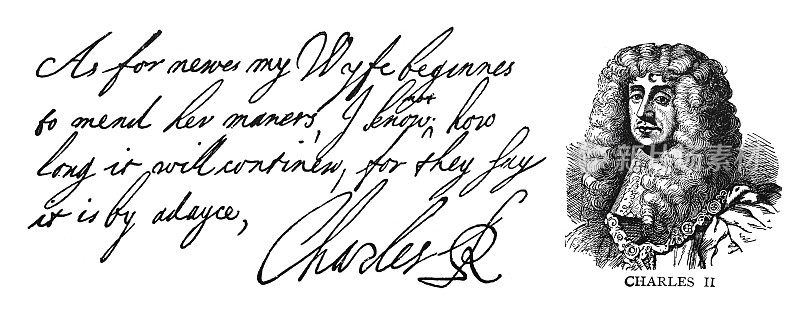 As for newes my Wyfe beginnes
to mend her maners, I know not how
long it will continew, for they say
it is by adayce,
Charles R
新片场素材
CHARLES II